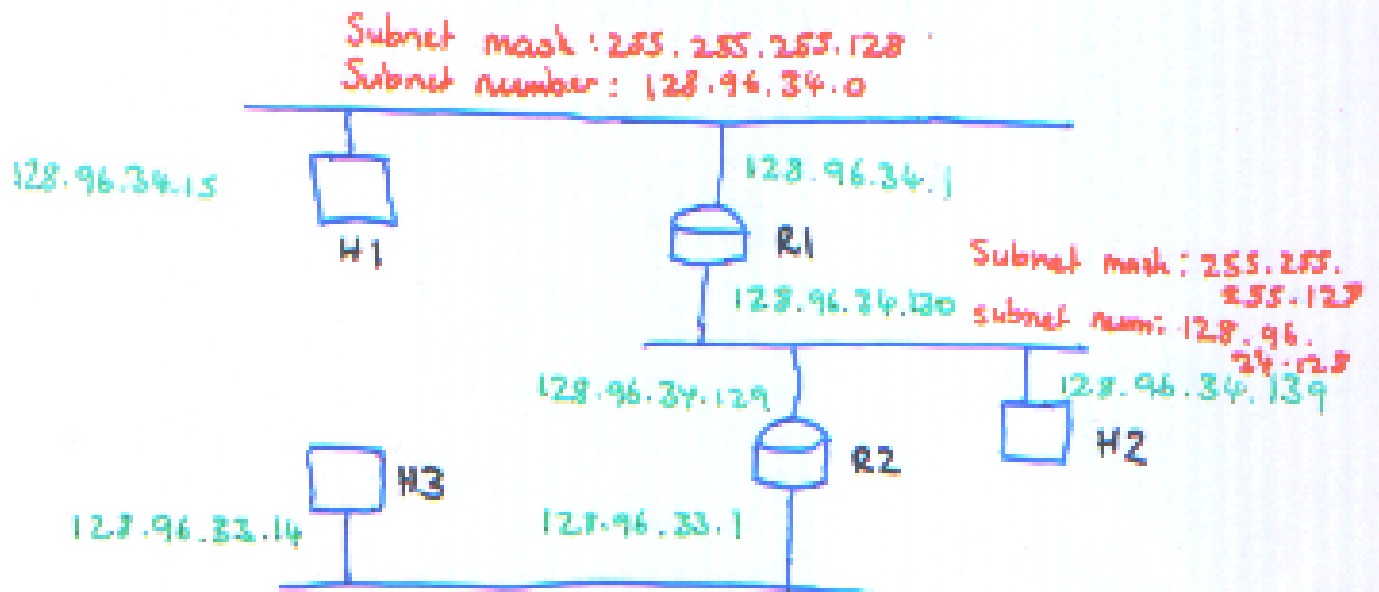 Subnet mask: 255.255.255.128
Subnet number: 128.96.34.0
128.96.34.15
128.96.34.1
H1
R1
Subnet mask: 255.255.
255.128
128.96.34.130
subnet num: 128.96.
34.128
128.96.34.129
128.96.34.139
H2
R2
H3
128.96.33.14
128.96.33.1